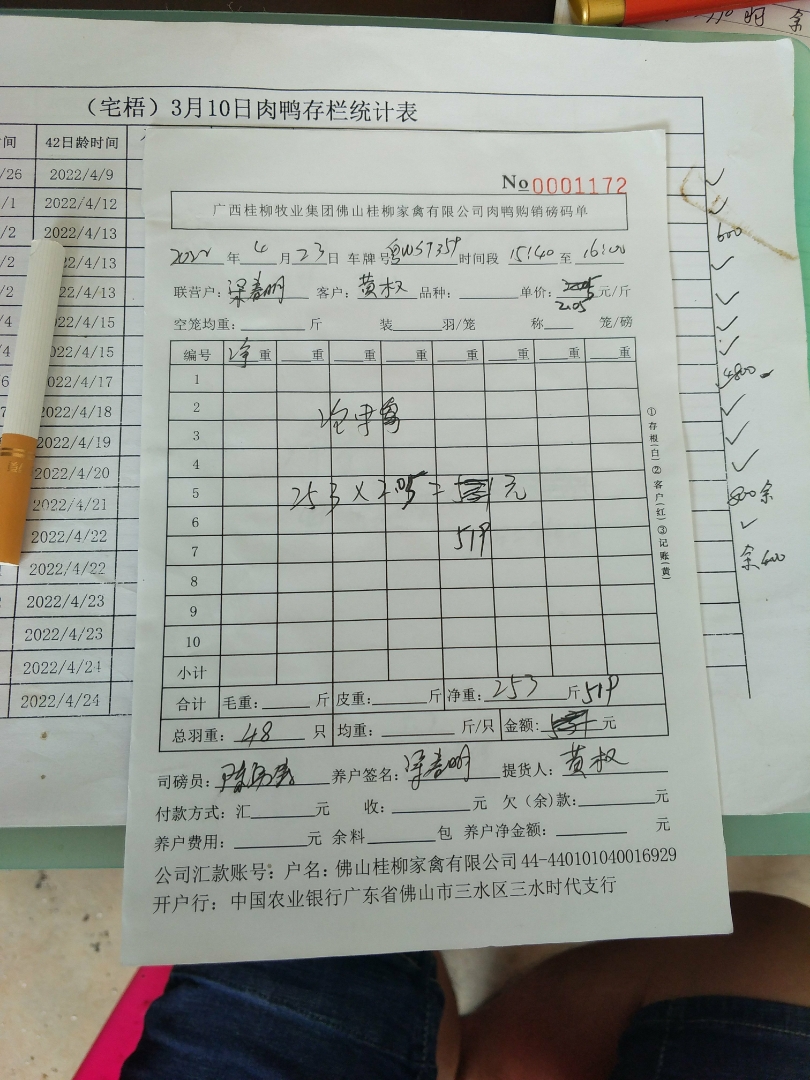 余
（宅梧）3月10日肉鸭存栏统计表
间 42日龄时间
/26 2022/4/9
/1 2022/4/12
/2 2022/4/13
/2 22/4/13
/2 2/4/13
/4 2022/4/15
/4 2022/4/15
6 2022/4/17
7 2022/4/18
2022/4/19
2022/4/20
2022/4/21
2022/4/22
2022/4/22
2022/4/23
2022/4/23
2022/4/24
2022/4/24
✓
✓
600
✓
✓
✓
✓
4800
✓
✓
✓
800余
✓
余400
No 0001172
广西桂柳牧业集团佛山桂柳家禽有限公司肉鸭购销磅码单
2022年4月23日 车牌号粤WS7359时间段 15:40至 16:00
联营户：梁春明 客户：黄权 品种： 单价： 元/斤
2.05
空笼均重： 斤 装 羽/笼 称 笼/磅
编号 净重 重 重 重 重 重 重 重
1
2
3
4
5 253×2.05= 元
6
519
7
8
9
10
小计
合计 毛重： 斤 皮重： 斤 净重：253斤 519
总羽重：48 只 均重： 斤/只 金额： 元
司磅员： 养户签名：梁春明 提货人：黄权
付款方式：汇 元 收： 元 欠（余）款： 元
养户费用： 元 余料 包 养户净金额： 元
公司汇款账号：户名：佛山桂柳家禽有限公司44-440101040016929
开户行：中国农业银行广东省佛山市三水区三水时代支行
①存根(白)②客户(红)③记账(黄)